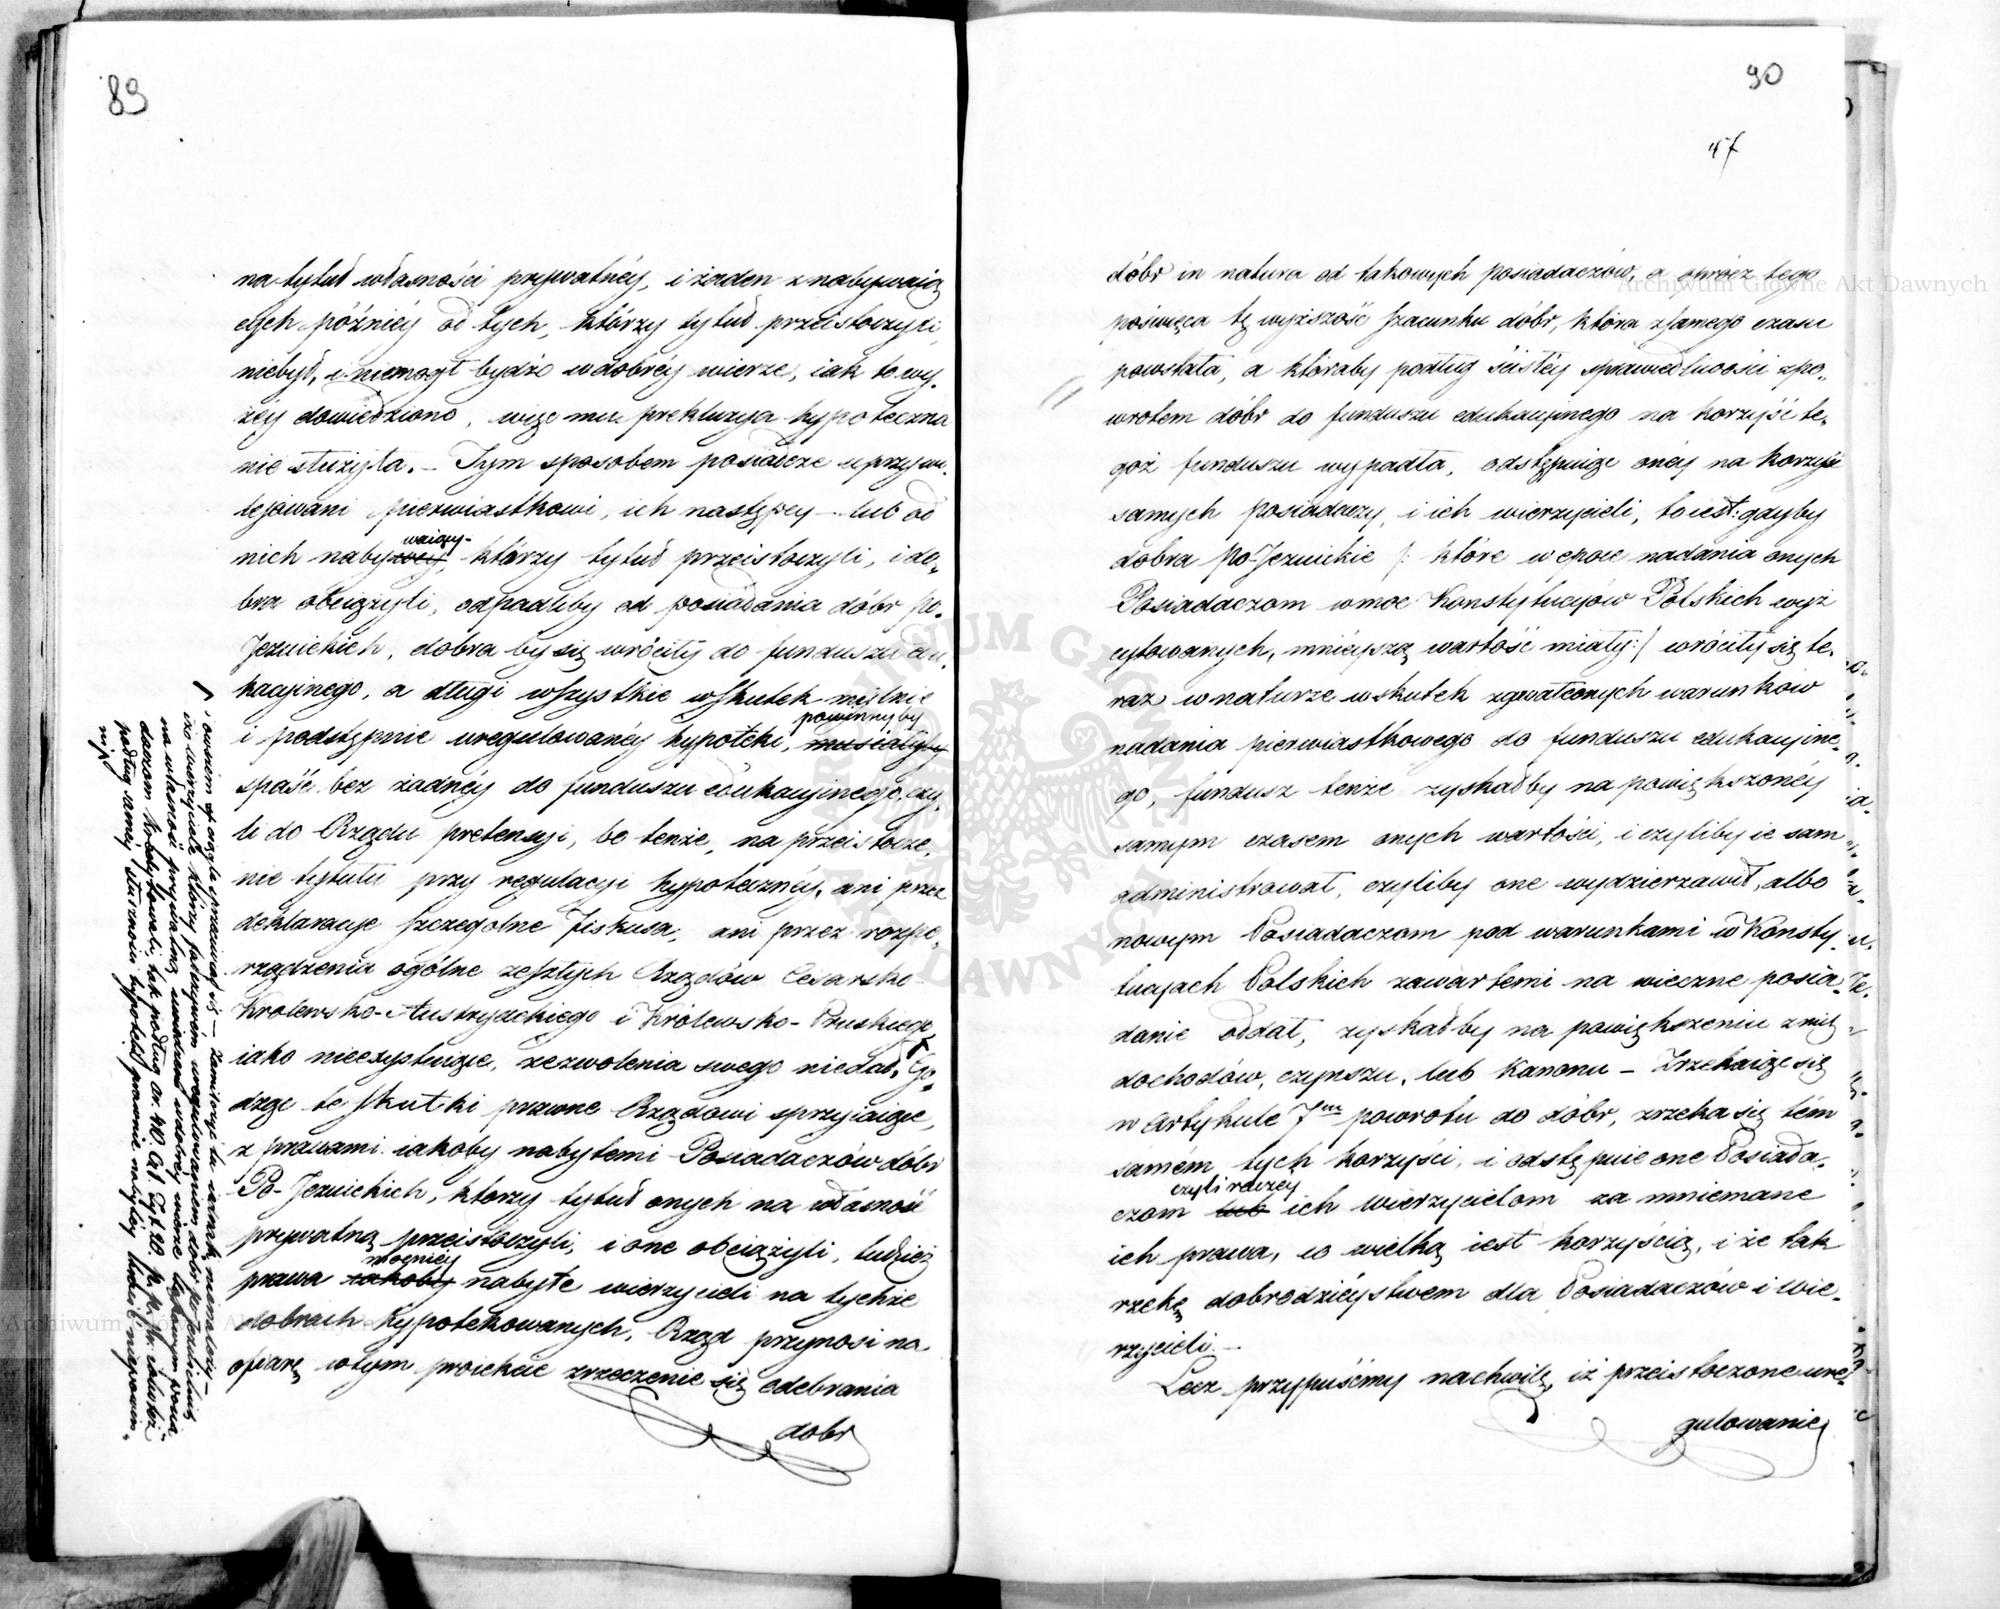 89
na tytuł własności prywatnéy, i żaden z nabywaią
cych późniéy od tych, którzy tytuł przeistoczyli,
niebył, i niemógł bydź w dobréy wierze, iak to wy„
żéy dowiedziono, więc mu prekluzya hypoteczna
nie służyła. – Tym sposobem posiadacze uprzywi„
lejowani pierwiastkowi, ich następcy – lub od
waiący-
nich nabywcy, którzy tytuł przeistoczyli, i do„
bra obciążyli, odpadliby od posiadania dóbr po„
Jezuickich, dobra by się wróciły do funduszu edu„
kacyinego, a długi wszystkie wskutek mylnie
powinnyby
i podstępnie uregulowanéy hypoteki, musiałyby
spaść bez żadnéy do funduszu edukacyinego, czy„
li do Rządu pretensyi, bo tenże, na przeistocze„
nie tytułu przy regulacyi hypotecznéy, ani przez
deklaracye szczególne Fiskusa, ani przez rozpo„
rządzenia ogólne zeszłych Rządów Cesarsko
Królewsko-Austryackiego i Królewsko-Pruskiego,
iako nieexystuiące, zezwolenia swego niedał. Go„
dząc te skutki prawne Rządowi sprzyiaiące,
z prawami iakoby nabytemi Posiadaczów dóbr
Po-Jezuickich, ktorzy tytuł onych na własność
prywatną przeistoczyli, i one obciążyli, tudzież
mocniéy
prawa iakoby nabyte wierzycieli na tychże
dobrach hypotekowanych, Rząd przynosi na
ofiarę wtym proiekcie zrzeczenie się odebrania
dobr
na własność prywatną
podług saméy słuszności hypotek prawnie nabytéy
90
47
dóbr in natura od takowych posiadaczów, a oprócz tego
poświęca tę wyższość szacunku dóbr, która z samego czasu
powstała, a któraby podług ścisłéy sprawiedliwości z po„
wrotem dóbr do funduszu edukacyinego na korzyść te„
goż funduszu wypadła, odstępuiąc onéy na korzyść
samych posiadaczy, i ich wierzycieli, to iest: gdyby
dobra po-Jezuickie /: które w epoce nadania onych
Posiadaczom wmoc Konstytucyów Polskich wyż
cytowanych, mnieyszą wartość miały :/ wróciły się te„
raz w naturze wskutek zgwałconych warunków
nadania pierwiastkowego do funduszu edukacyine„
go, fundusz tenże zyskałby na powiększonéy
samym czasem onych wartości, i czyliby ie sam
administrował, czyliby one wydzierzawił, albo
nowym Posiadaczom pod warunkami w Konsty„
tucyach Polskich zawartemi na wieczne posia„
danie oddał, zyskałby na powiększeniu z nich
dochodów, czynszu, lub Kanonu – Zrzekaiąc się
w Artykule 7ym powrotu do dóbr, zrzeka się tém
samém tych korzyści, i odstępuie one Posiada„
czyli raczey
czom lub ich wierzycielom za mniemane
ich prawa, co wielką iest korzyścią, i że tak
rzekę dobrodzieystwem dla Posiadaczów i wie„
rzycieli. –
Lecz przypuśćmy nachwilę, iż przeistoczone ure„
gulowanie